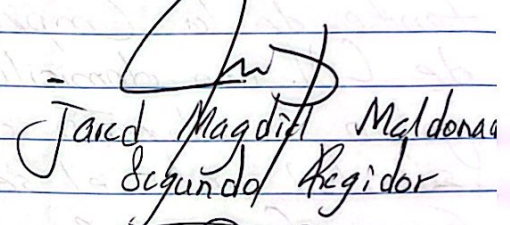 Jared Magdiel Maldona
Segundo Regidor